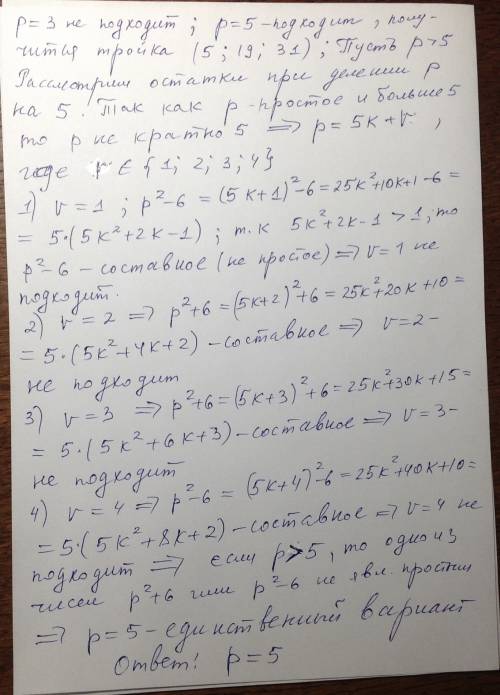 p=3 не подходит; p=5-подходит, полу-
читья тройка (5; 19; 31); Пусть p>5
Рассмотрим остатки при делении p
на 5. Так как p-простое и больше 5
то p не кратно 5 ⇒ p=5k+v,
где v ∈ {1; 2; 3; 4}
1) v=1; p²-6 = (5k+1)²-6=25k²+10k+1-6=
= 5·(5k²+2k-1); т.к 5k²+2k-1>1; то
p²-6 - составное (не простое) ⇒ v=1 не
подходит.
2) v=2 ⇒ p²+6=(5k+2)²+6=25k²+20k+10=
=5·(5k²+4k+2)-составное ⇒ v=2-
не подходит
3) v=3 ⇒ p²+6=(5k+3)²+6=25k²+30k+15=
= 5·(5k²+6k+3)-составное ⇒ v=3-
не подходит
4) v=4 ⇒ p²-6=(5k+4)²-6=25k²+40k+10=
=5·(5k²+8k+2)-составное ⇒ v=4 не
подходит ⇒ если p>5, то одно из
чисел p²+6 или p²-6 не явл. простым
⇒ p=5-единственный вариант
Ответ: p=5